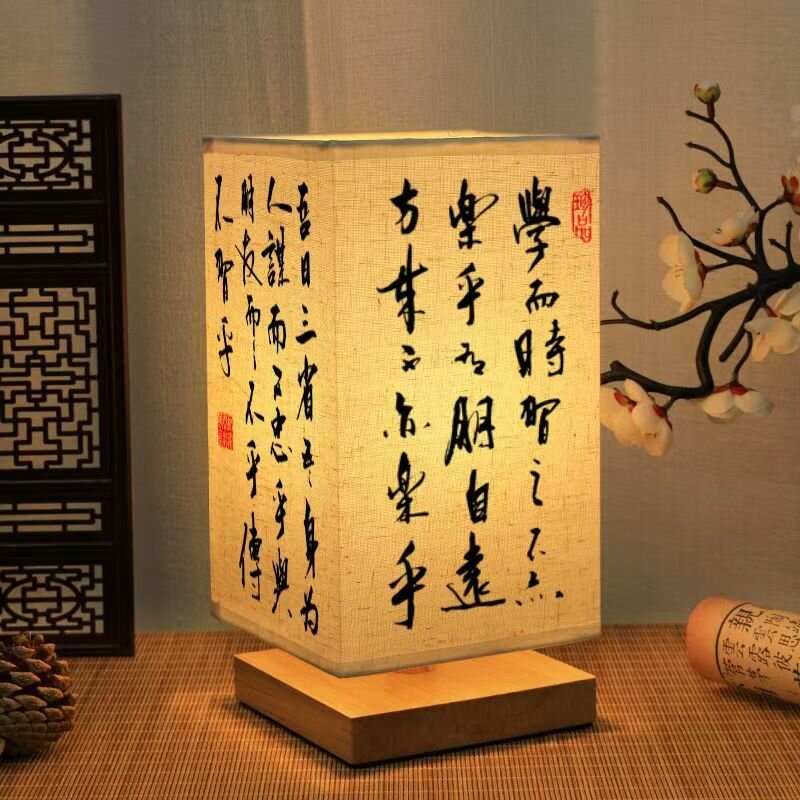 學而時習之不亦
樂乎有朋自遠
方來不亦樂乎
吾日三省吾身為
人謀而不忠乎與
朋友而不乎傳
不習乎